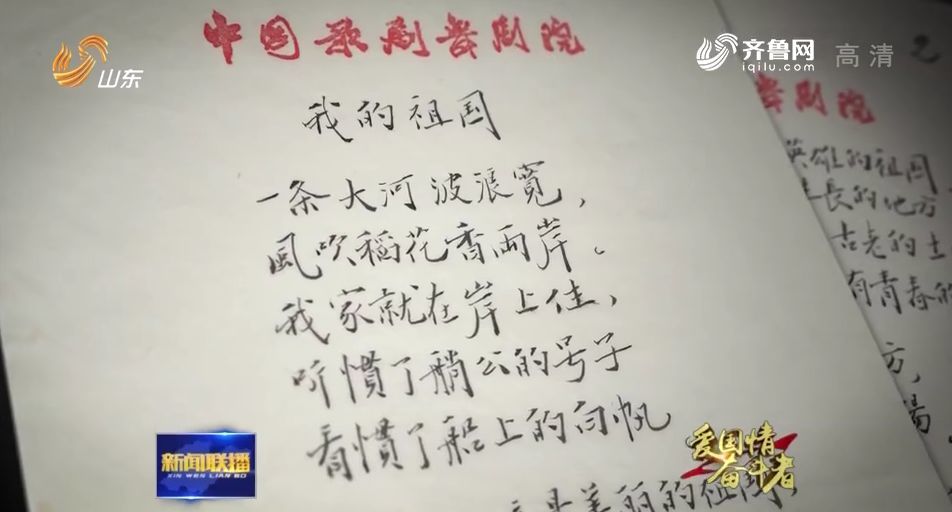 山东
齐鲁网
iqilu.com
高清
中国歌剧舞剧院
我的祖国
一条大河波浪寬，
風吹稻花香两岸。
我家就在岸上住，
听慣了艄公的号子
看慣了船上的白帆
是美丽的祖国，
舞剧院
英雄的祖国
生長的地方
古老的土
有青春的
方，
新闻联播
XIN WEN LIAN BO
爱国情
奋斗者